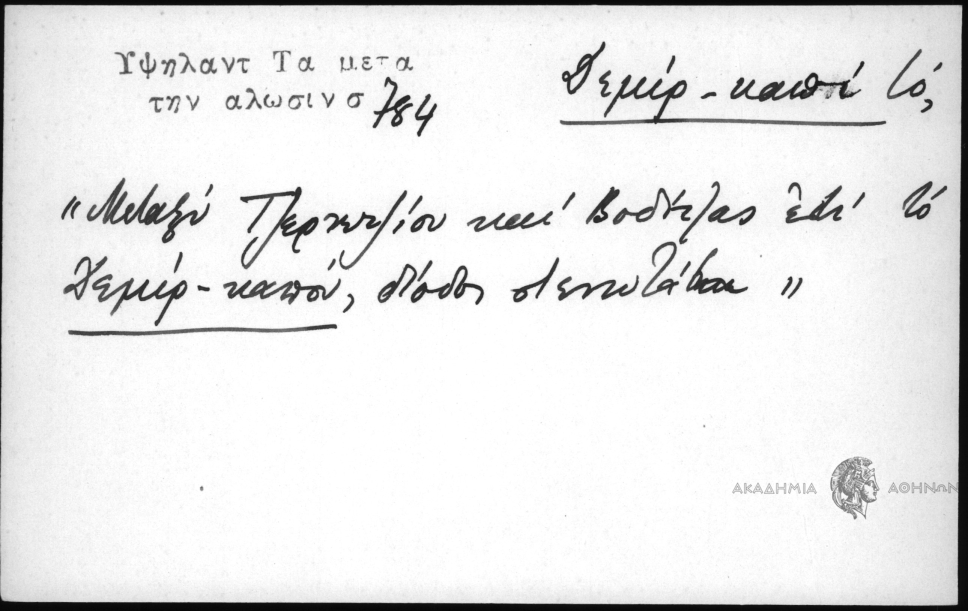 Υψηλαντ Τα μετα
την αλωσιν σ 784
Δεμίρ - καπί τό,
"Μεταξύ Τζερνετζίου καί Βοδίτζας ἐστί τό
Δεμίρ - καπού, δίοδος στενωτάτη"
ΑΚΑΔΗΜΙΑ ΑΘΗΝΩΝ